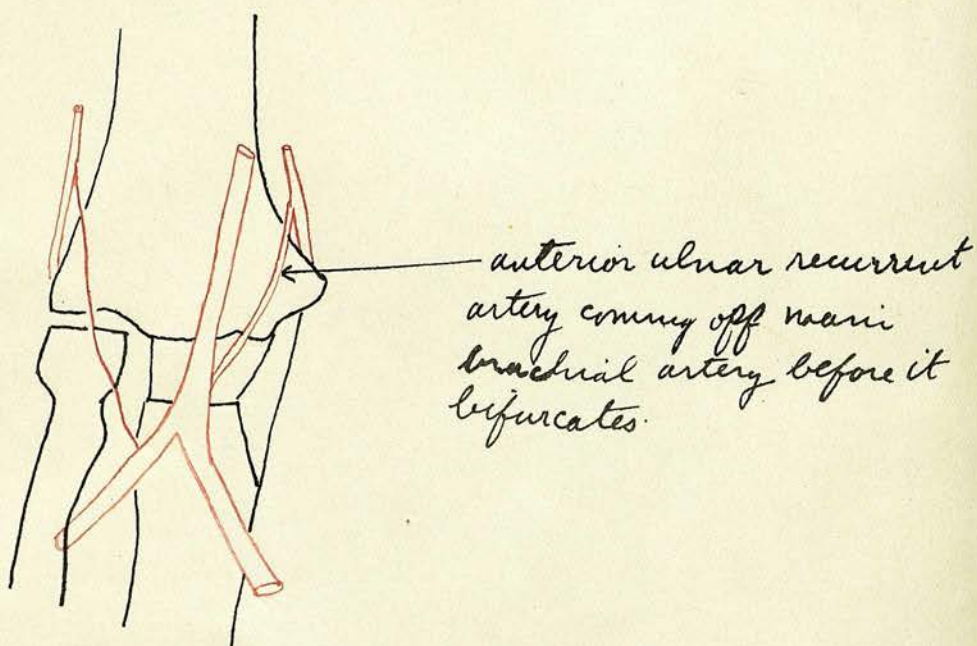 anterior ulnar recurrent
artery coming off main
brachial artery before it
bifurcates.